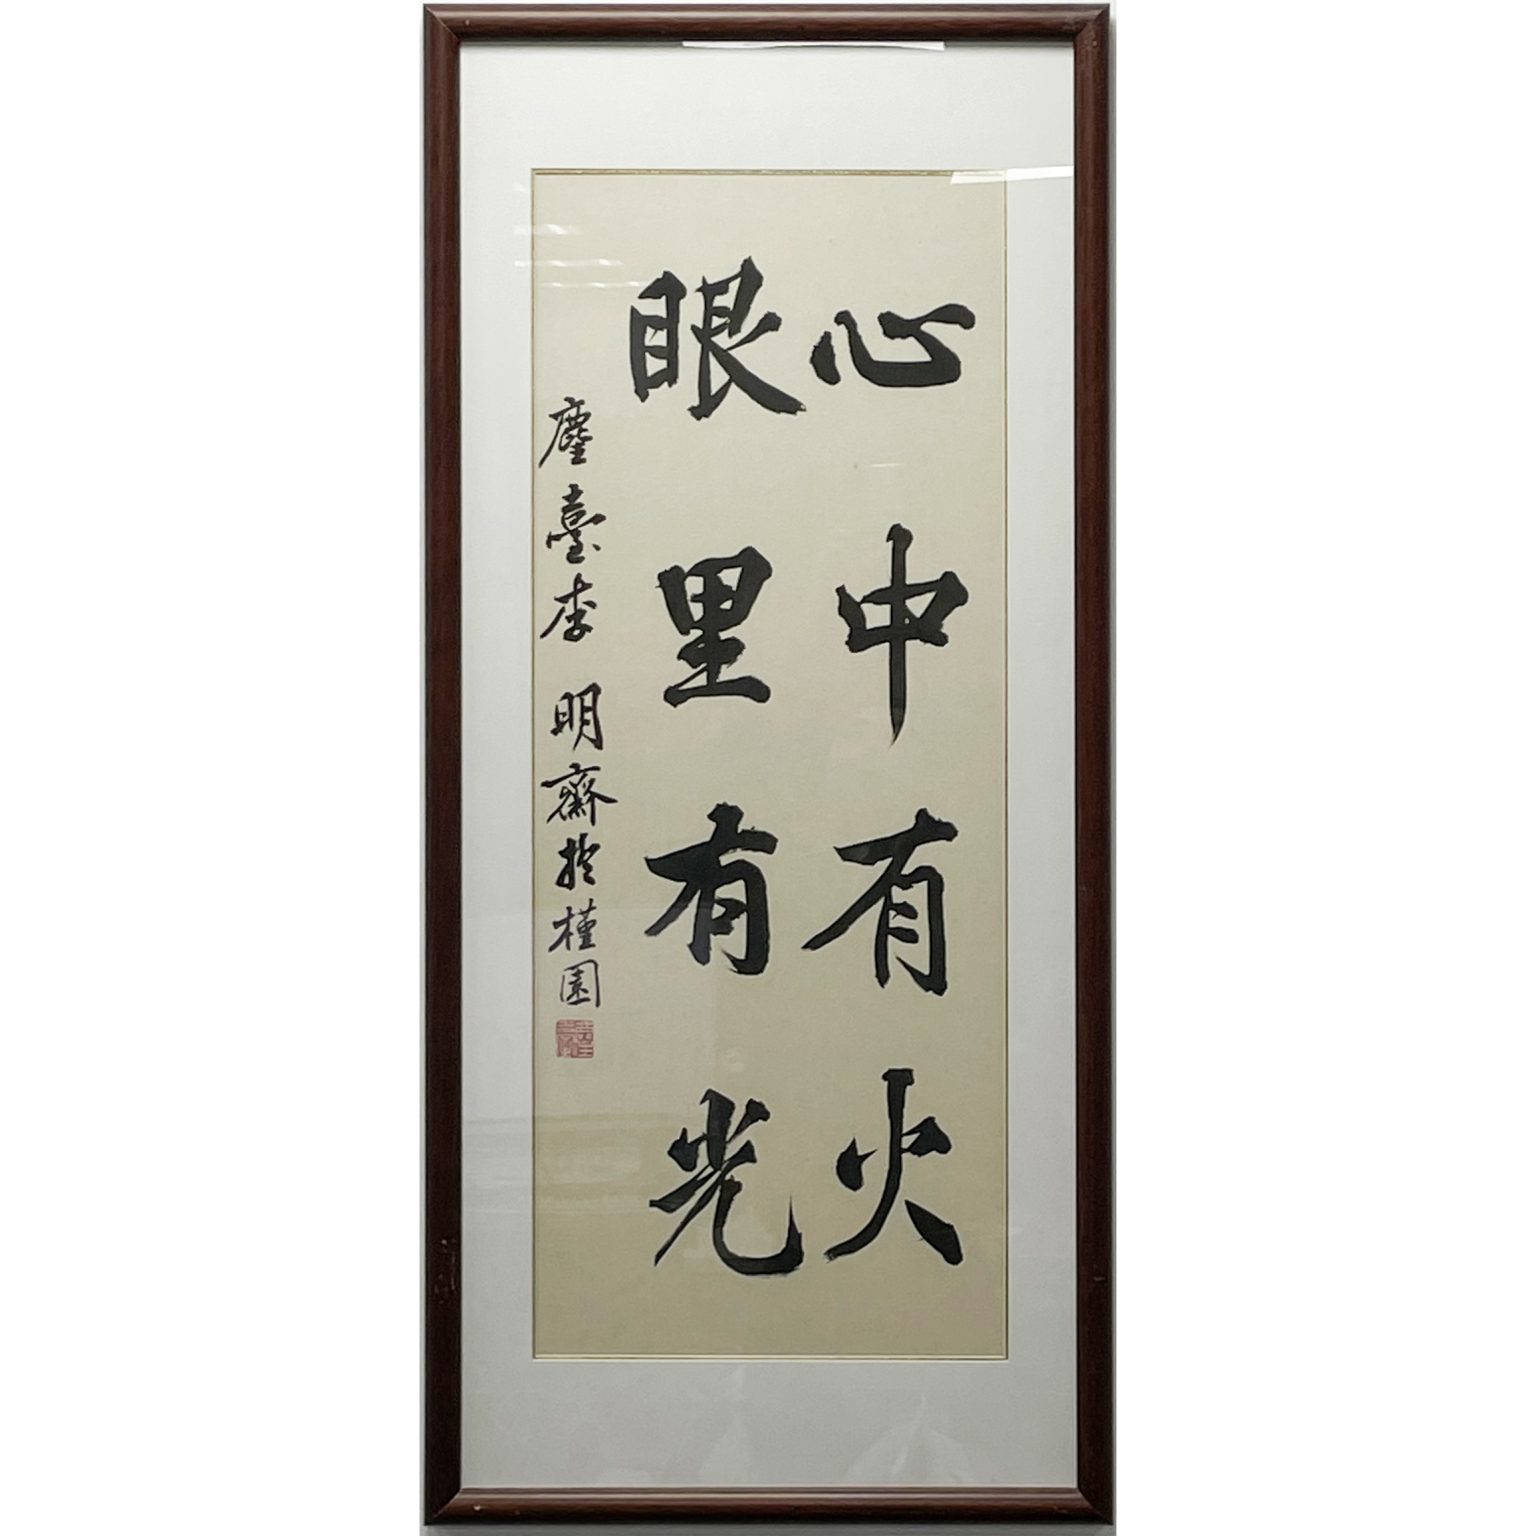 心中有火
眼里有光
麈臺李明齋於槿園